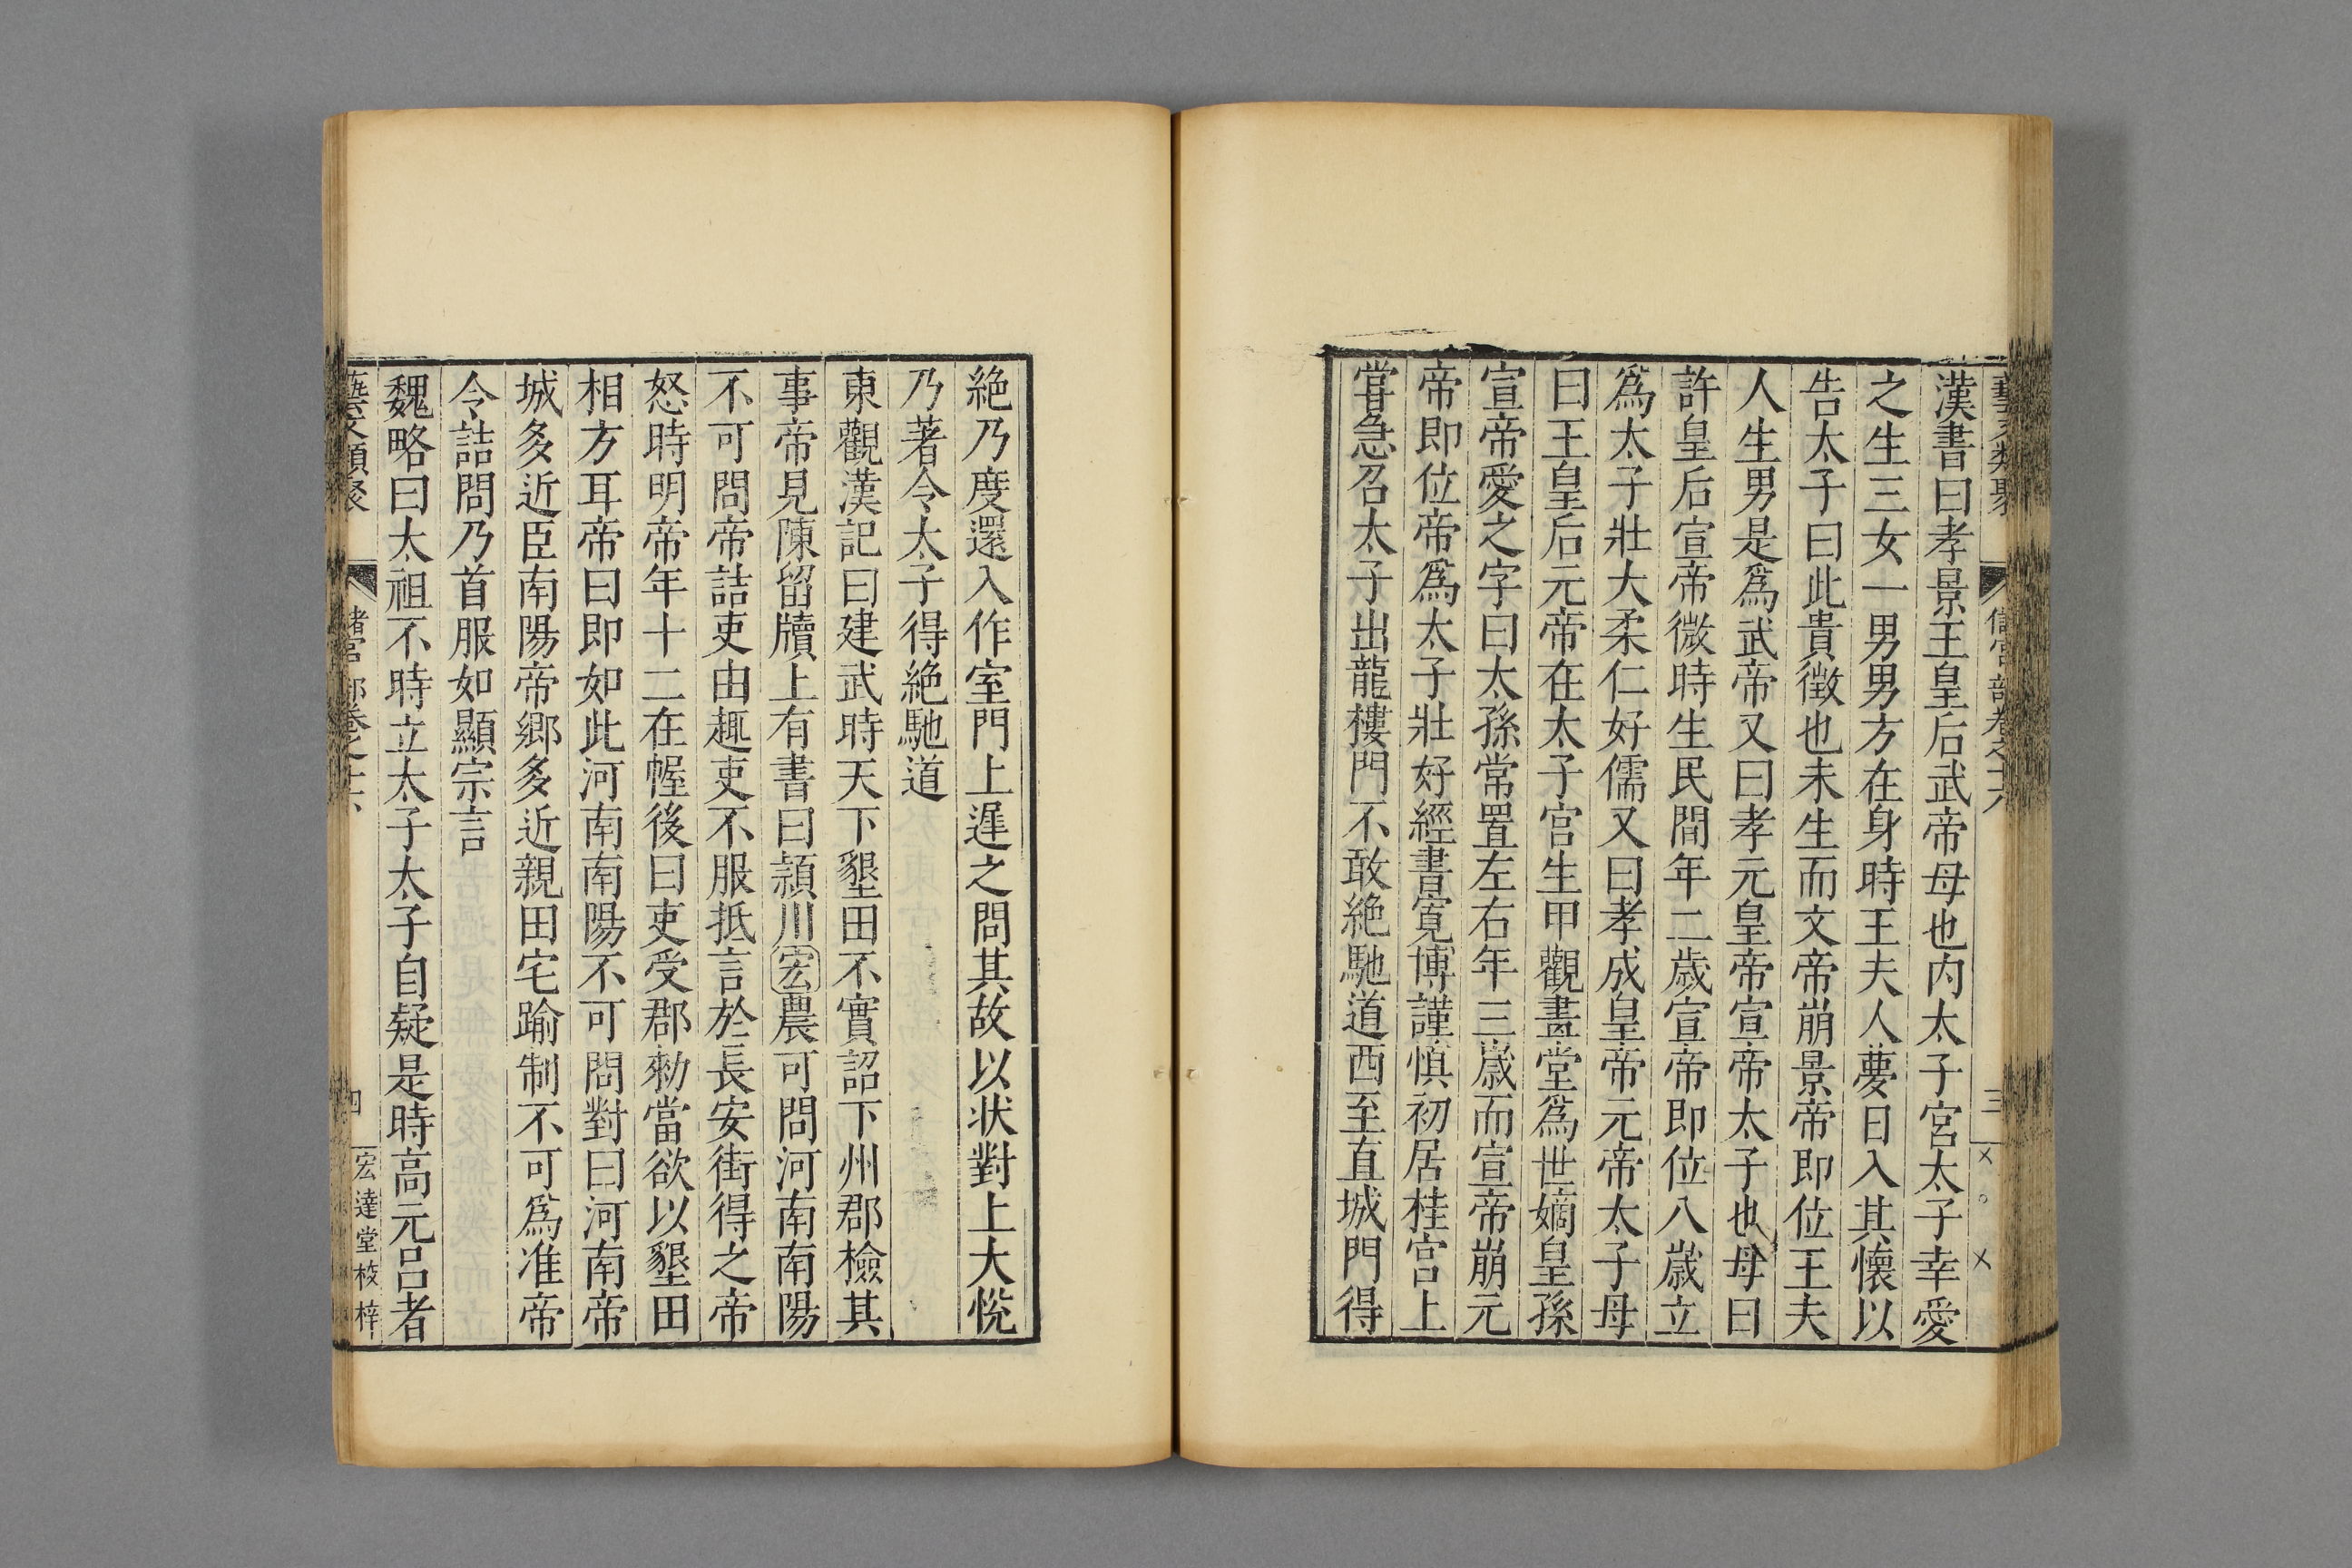 藝文類聚 儲宮部卷之十六 三
漢書曰孝景王皇后武帝母也内太子宮太子幸愛
之生三女一男男方在身時王夫人夢日入其懷以
告太子曰此貴徴也未生而文帝崩景帝即位王夫
人生男是爲武帝又曰孝元皇帝宣帝太子也母曰
許皇后宣帝微時生民間年二歳宣帝即位八歳立
爲太子壯大柔仁好儒又曰孝成皇帝元帝太子母
曰王皇后元帝在太子宮生甲觀畫堂爲世嫡皇孫
宣帝愛之字曰太孫常置左右年三歳而宣帝崩元
帝即位帝爲太子壯好經書寛博謹慎初居桂宮上
甞急召太子出龍樓門不敢絶馳道西至直城門得
絶乃度還入作室門上遲之問其故以状對上大悅
乃著令太子得絶馳道
東觀漢記曰建武時天下墾田不實詔下州郡檢其
事帝見陳留牘上有書曰頴川宏農可問河南南陽
不可問帝詰吏由趣吏不服抵言於長安街得之帝
怒時明帝年十二在幄後曰吏受郡勑當欲以墾田
相方耳帝曰即如此河南南陽不可問對曰河南帝
城多近臣南陽帝郷多近親田宅踰制不可爲准帝
令詰問乃首服如顯宗言
魏略曰太祖不時立太子太子自疑是時高元呂者
藝文類聚 儲宮部卷之十六 四 宏達堂校梓